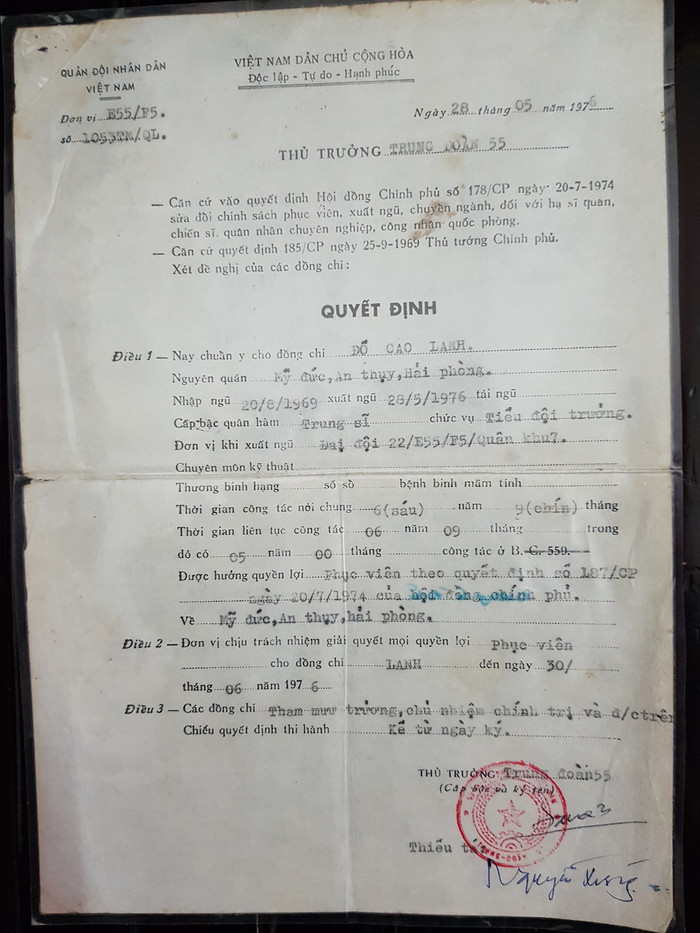 QUÂN ĐỘI NHÂN DÂN
VIỆT NAM
Đơn vị E55/F5.
số 1053TM/QL.
VIỆT NAM DÂN CHỦ CỘNG HÒA
Độc lập - Tự do - Hạnh phúc
Ngày 28 tháng 05 năm 1976
THỦ TRƯỞNG TRUNG ĐOÀN 55
— Căn cứ vào quyết định Hội đồng Chính phủ số 178/CP ngày 20-7-1974
sửa đổi chính sách phục viên, xuất ngũ, chuyển ngành, đối với hạ sĩ quan,
chiến sĩ, quân nhân chuyên nghiệp, công nhân quốc phòng.
— Căn cứ quyết định 185/CP ngày 25-9-1969 Thủ tướng Chính phủ.
Xét đề nghị của các đồng chí :
QUYẾT ĐỊNH
Điều 1 — Nay chuẩn y cho đồng chí ĐỖ CAO LANH.
Nguyên quán Mỹ đức,An thụy,Hải phòng.
Nhập ngũ 20/8/1969 xuất ngũ 28/5/1976 tái ngũ
Cấp bậc quân hàm Trung sĩ chức vụ Tiểu đội trưởng.
Đơn vị khi xuất ngũ Đại đội 22/E55/F5/Quân khu7.
Chuyên môn kỹ thuật
Thương binh hạng số sổ bệnh binh mãm tính
Thời gian công tác nói chung 6(sáu) năm 9(chín) tháng
Thời gian liên tục công tác 06 năm 09 tháng trong
đó có 05 năm 00 tháng công tác ở B. C. 559.
Được hưởng quyền lợi Phục viên theo quyết định số 187/CP
ngày 20/7/1974 của hội đồng chính phủ.
Về Mỹ đức,An thụy,hải phòng.
Điều 2 — Đơn vị chịu trách nhiệm giải quyết mọi quyền lợi Phục viên
cho đồng chí LANH đến ngày 30/
tháng 06 năm 1976
Điều 3 — Các đồng chí Tham mưu trưởng,chủ nhiệm chính trị và đ/ctrên
Chiếu quyết định thi hành Kể từ ngày ký.
THỦ TRƯỞNG Trung đoàn55
(Cấp bậc và ký tên)
Thiếu tá
Nguyễn